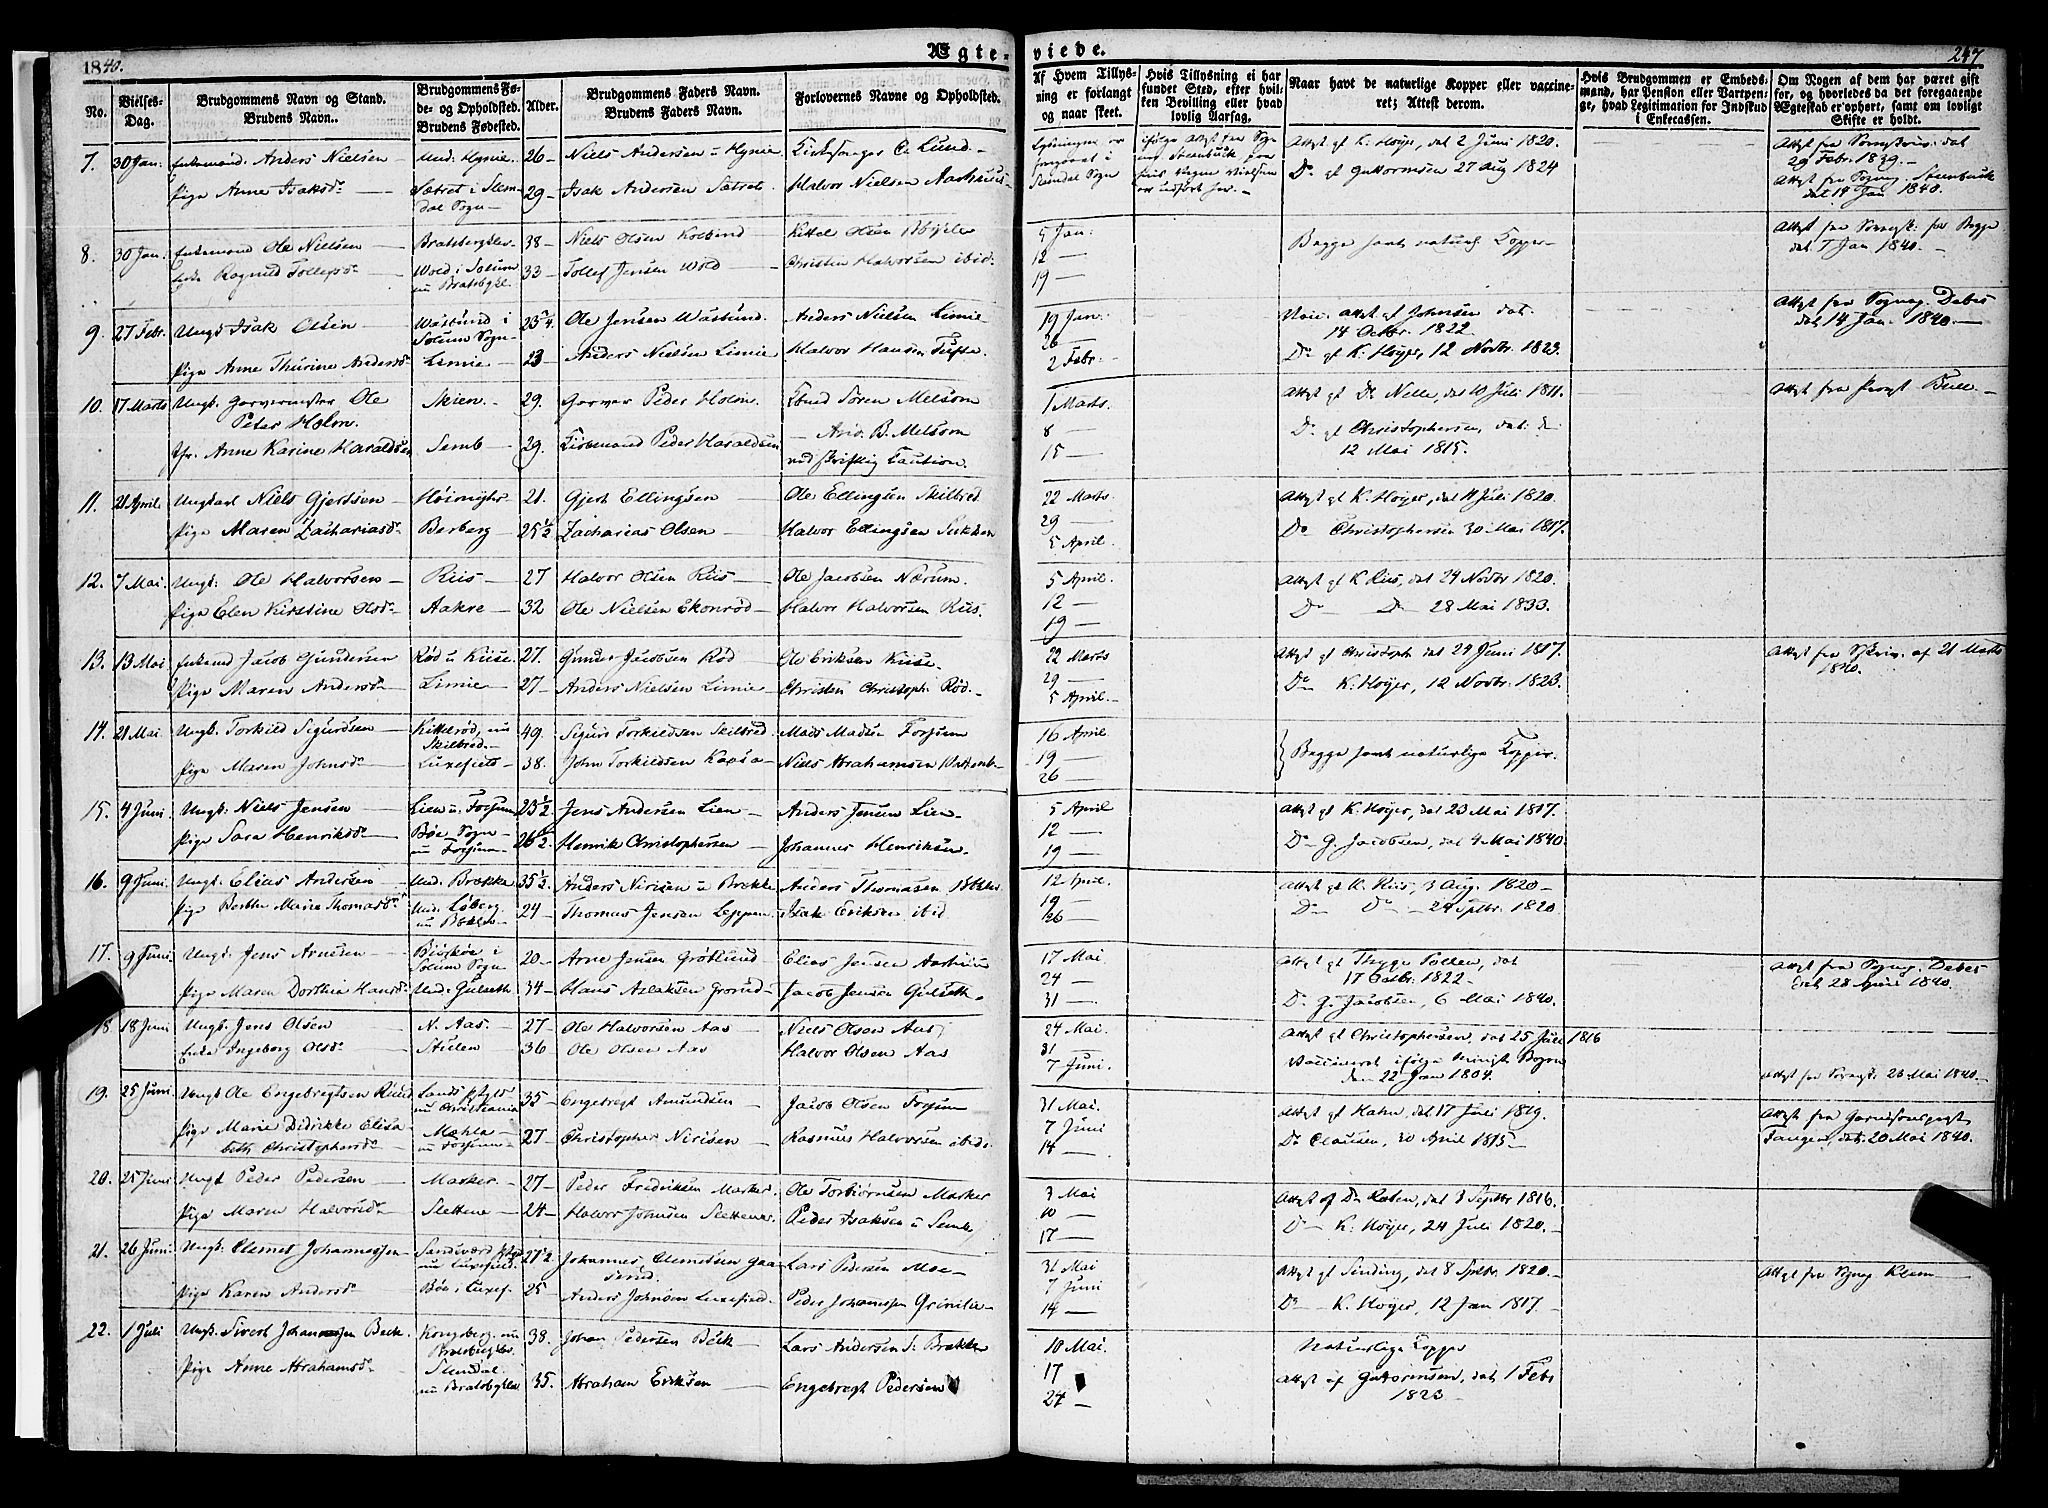 1840.
Ægte-
viede.
247
No.
Vielses-
Dag.
Brudgommens Navn og Stand.
Brudens Navn.
Brudgommens Fø-
de- og Opholdsted.
Brudens Fødested.
Alder.
Brudgommens Faders Navn.
Brudens Faders Navn.
Forlovernes Navne og Opholdsted.
Af Hvem Tillys-
ning er forlangt
og naar skeet.
Hvis Tillysning ei har
fundet Sted, efter hvil-
ken Bevilling eller hvad
lovlig Aarsag.
Naar havt de naturlige Kopper eller vaccine-
ret; Attest derom.
Hvis Brudgommen er Embeds-
mand, har Pension eller Vartpen-
ge, hvad Legitimation for Indskud
i Enkecassen.
Om Nogen af dem har været gift
før, og hvorledes da det foregaaende
Ægteskab er ophørt, samt om lovligt
Skifte er holdt.
7. 30 Jan. Enkemand. Anders Nielsen 26 Niels Andersen Kirkesanger C. Lund Attest af K. Høyer, dat 2 Juni 1820.
29 Febr. 1839.
Pige Anne Isaksd. Sætret i Slem-
dal Sogn 29 Isak Andersen Sætret Halvor Nielsen Aarhuus Do af Guttormsen 27 Aug 1824
dat 19 Jan 1840.
8. 30 Jan. Enkemand Ole Nielsen Bratsbergklev 38 Niels Olsen Kittel Olsen 5 Jan: Begge havt naturl. Kopper
dat 7 Jan 1840.
Enke Ragnild Tollefsd. Wold i Solum
nu Bratsbgkl. 33 Tollef Jensen Wold Christen Halvorsen ibid. 12
19
9. 27 Febr. Ungk. Isak Olsen Wastund i
Solum Sogn 23 Ole Jensen Wastund Anders Nielsen Limie 19 Jan. Attest af Johnsen dat.
14 Octbr. 1822.
Attest fra Sogneg. Debes
dat 14 Jan. 1840.
26
Pige Anne Thurine Andersd. Limie 23 Anders Nielsen Limie Halvor Hansen Tufte 2 Febr. Do af K. Høyer, 12 Novbr. 1823.
10. 17 Marts Ungk. Garvermester Ole
Peter Holm. Skien 29. Garver Peder Holm. Søren Melsom 1 Marts Attest af Dr. Nelle, dat 10 Juli 1811. Attest fra Provst Bull
B. Melsom 8 Do af Christophersen, dat. d.
12 Mai 1815.
Jfr. Anne Karine Haraldsen Semb 29. Peder Haraldsen ved skriftlig Caution. 15
11. 21 April Ungkarl Niels Gjertsen 21. Gjert Ellingsen Ole Ellingsen Skilbred 22 Marts Attest af K. Høyer, dat 11 Juli 1820.
Pige Maren Zachariasd. Berberg 25½ Zacharias Olsen Halvor Ellingsen 29
5 April. Do Christophersen 30 Mai 1817.
12. 7 Mai. Ungk. Ole Halvorsen Riis 27 Halvor Olsen Riis Ole Jacobsen Nærum. 5 April Attest af K. Riis, dat 24 Novbr 1820.
Pige Elen Kirstine Olsd. Aakre 32 Ole Nielsen Ekonrød Halvor Halvorsen Riis. 12
19 Do Do 28 Mai 1833.
13. 13 Mai Enkemd Jacob Gundersen Rød u Kiise 27. Gunder Jacobsen Rød Ole Eriksen Kiise. 22 Marts Attest af Christoph. dat 24 Juni 1817. af 21 Marts
1840.
Pige Maren Andersd. Limie 27 Anders Nielsen Limie Christen Christoph. Rød. 29
5 April. Do K. Høyer, 12 Novbr. 1823.
14. 21 Mai Ungk. Torkild Sigurdsen Kittelrød, nu
Skilbred 49 Sigurd Torkildsen Skilbred Mads Madsen Fossum 16 April Begge havt naturlige Kopper.
Pige Maren Johnsd. Luxefield 38. John Torkildsen Niels Abrahamsen 19
26
15. 4 Juni Ungk. Niels Jensen Lien u. Fossum 23½ Jens Andersen Lien Anders Jensen Lien. 5 April Attest af K. Høyer, dat 23 Mai 1817.
Pige Sara Henriksd. Bøe Sogn
nu Fossum 26½ Henrik Christophersen Johannes Henriksen. 12
19 Do G. Jacobsen, dat 4 Mai 1840.
16. 9 Juni Ungk. Elias Andersen Und. Brække 35½ Anders Nirisen u Brække Anders Thomasen 12 April. Attest af K. Riis, 3 Aug. 1820
Pige Berthe Maria Thomasd. Und. Løberg 24 Thomas Jensen Isak Eriksen ibid 19
26 Do Do 24 Septbr. 1820
17. 9 Juni Ungk. Jens Arnesen i
Solum Sogn 20 Arne Jensen Grøtsund Elias Jensen 17 Mai. Attest af Thyge Poulsen, dat
17 Octbr. 1822.
Attest fra Sogneg. Debes
dat 28 April 1840.
Pige Maren Dorthea Hansd. Und. Gulseth 34 Hans Aslaksen Jacob Jensen Gulseth. 24
31 Do G. Jacobsen, 6 Mai 1840.
18. 18 Juni Ungk. Jens Olsen N. Aas. 27 Ole Halvorsen Aas Niels Olsen Aas 24 Mai. Attest af Christophersen, dat 25 Juli 1816
Enke Ingeborg Olsd. Stulen 36 Ole Olsen Aas Halvor Olsen Aas 31
7 Juni. Vaccineret ifølge Minist. Bogen
den 22 Jan 1804.
23 Mai 1840.
19. 25 Juni Ungk Ole Engebregtsen Lands Pgjeld
nu Christiania 35 Engebregt Amundsen Jacob Olsen Fossum 31 Mai. Attest af Hahn, dat 17 Juli 1819. Attest fra Garnisonspræst
Tangen, dat. 20 Mai 1840.
Pige Marie Didrikke Elisa-
beth Christophersd. Mæhla
nu Fossum 27 Christopher Nirisen Rasmus Halvorsen ibid. 7 Juni
14 Do Clausen, 30 April 1815
20. 25 Juni Ungk Peder Pedersen Masker. 27 Peder Fredriksen Masker. Ole Torbiørnsen Masker 3 Mai Attest af Dr. Raben, dat 3 Septbr 1816.
Pige Maren Halvorsd. Slettene 24 Halvor Johnsen Slettene. Peder Isaksen u Semb 10
17 Do K. Høyer, 24 Juli 1820.
21. 26 Juni Ungk. Clemet Johannessen Sandsværd Pgjd
nu Luxefield. 27½ Johannes Clemetsen Gaa-
serud. Lars Pedersen Moe 31 Mai Attest af Sinding, dat 8 Septbr. 1820. Attest fra Sogneg Klem
Pige Karen Andersd. Bøe i Luxef. 25 Anders Johnsen Luxefield Peder Johannessen Grinilia 7 Juni
14 Do K. Høyer, 12 Jan 1817.
22. 1 Juli Ungk. Sivert Johannessen Beck Kongsberg nu
Bratsbgkl. 38. Johan Pedersen Beck Lars Andersen S. Brække 10 Mai. Naturlige Kopper
Pige Anne Abrahamsd. Slemdal
nu Bratsbgklev 35. Abraham Eriksen Engebregt Pedersen 17
24 Attest af Guttormsen, dat 1 Febr
1823